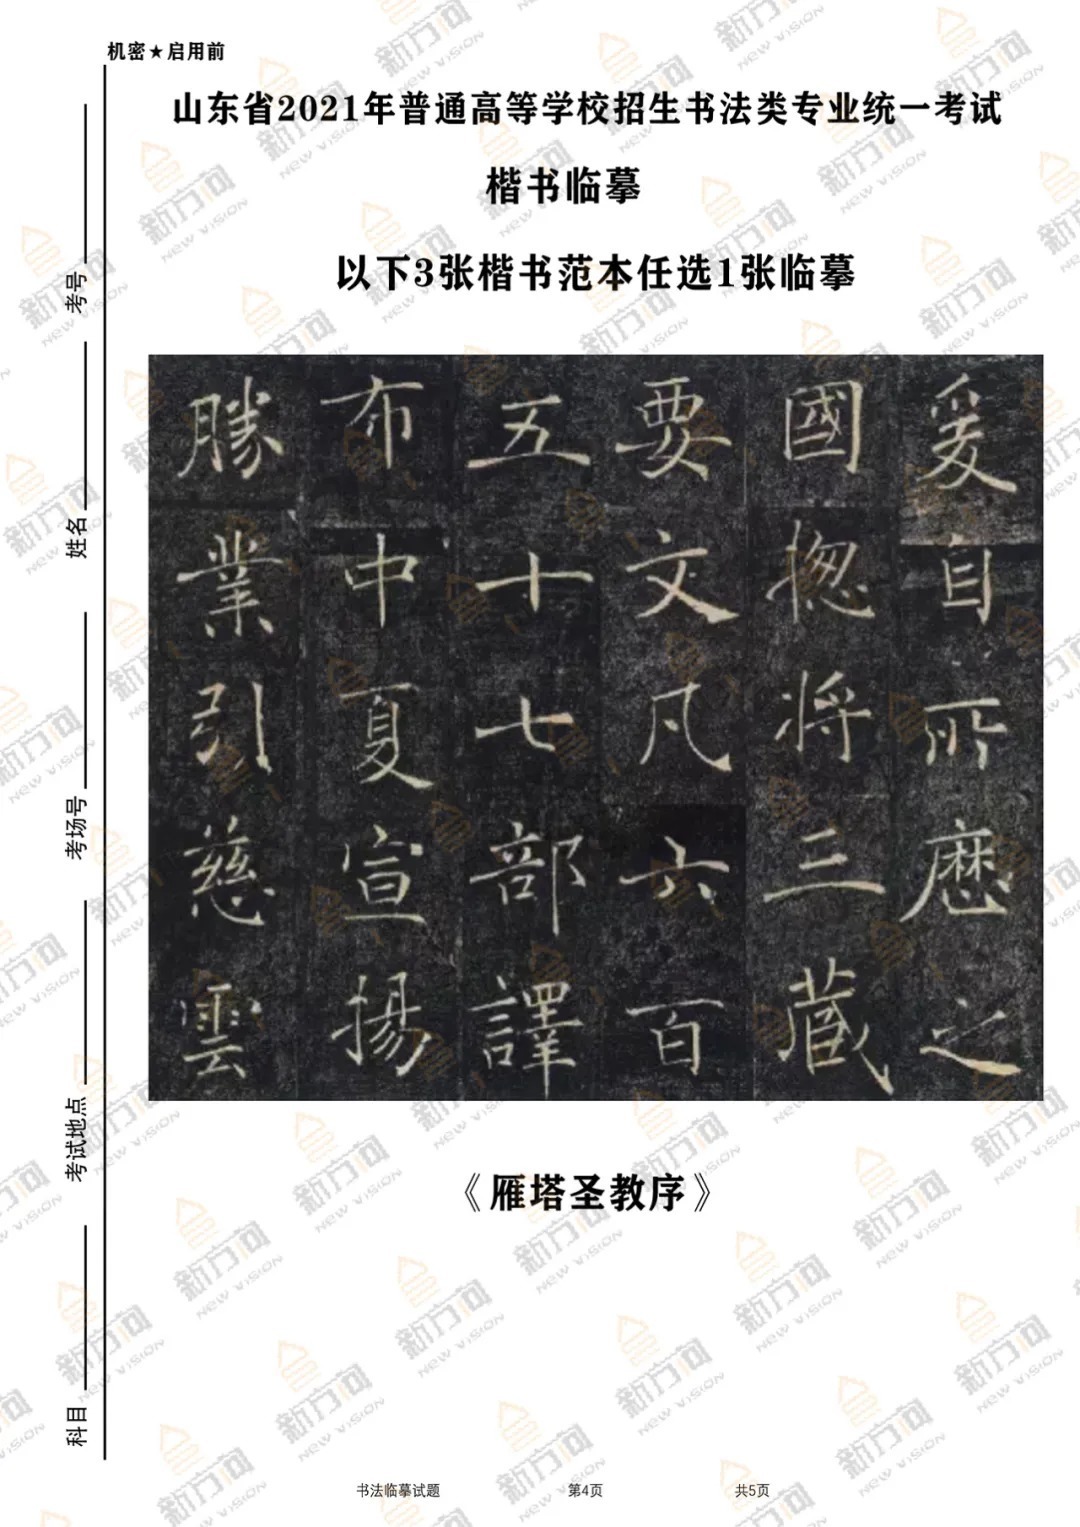 机密★启用前
山东省2021年普通高等学校招生书法类专业统一考试
楷书临摹
以下3张楷书范本任选1张临摹
考号
姓名
考场号
考试地点
科目
爰自所歷之
國揔將三藏
要文凡六百
五十七部譯
布中夏宣揚
勝業引慈雲
《雁塔圣教序》
书法临摹试题 第4页 共5页
新方向
NEW VISION